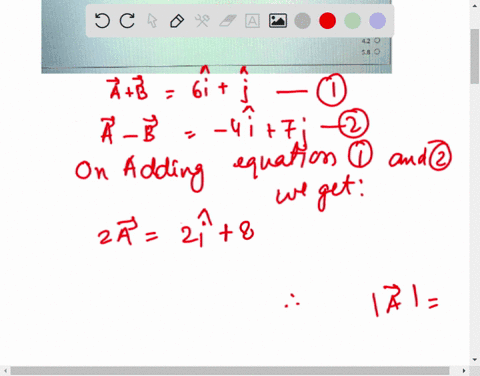 4.2
5.8
A⃗+B⃗ = 6î + ĵ — ①
A⃗ − B⃗ = −4î + 7j —②
On Adding equation ① and ②
we get:
2A⃗ = 2î + 8
∴ |A⃗| =